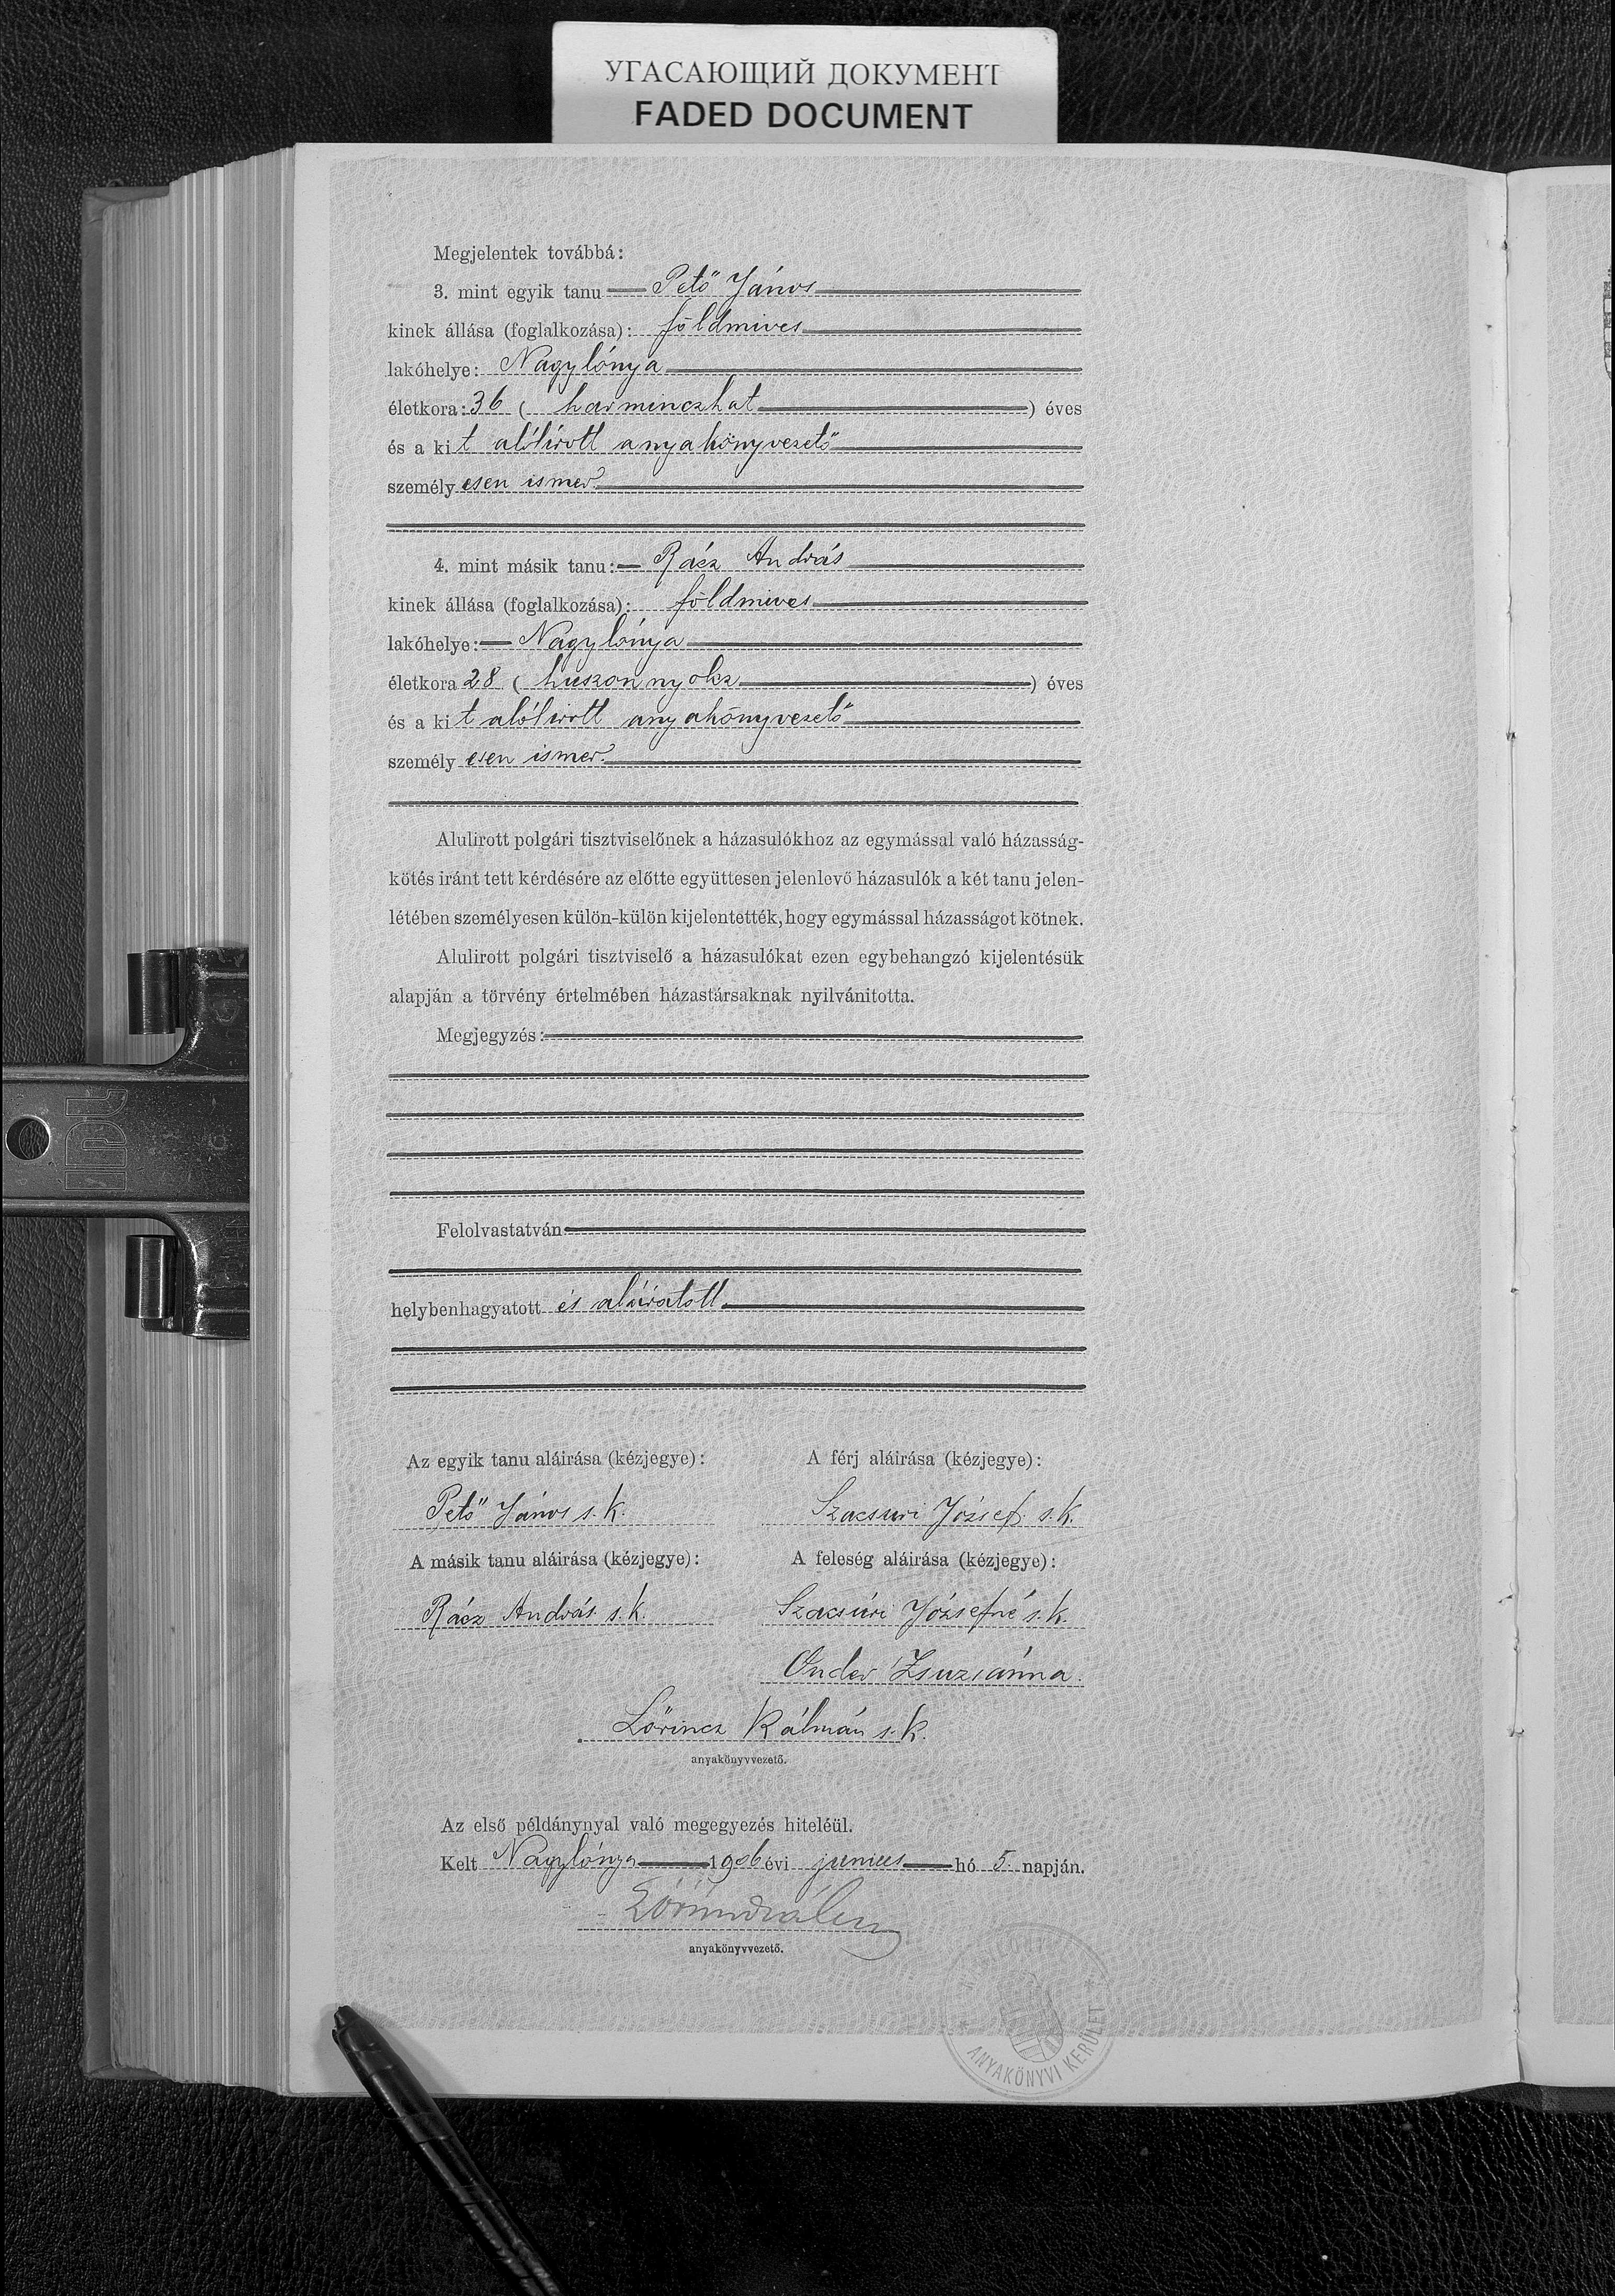 УГАСАЮЩИЙ ДОКУМЕНТ
FADED DOCUMENT
Megjelentek továbbá:
3. mint egyik tanu Pető János
kinek állása (foglalkozása): földmives
lakóhelye: Nagylónya
életkora: 36 ( harminczhat ) éves
és a kit alólirott anyakönyvezető
személyesen ismer.
4. mint másik tanu: Rácz András
kinek állása (foglalkozása): földmives
lakóhelye: Nagylónya
életkora 28 ( huszonnyolcz ) éves
és a kit alólirott anyakönyvezető
személyesen ismer.
Alulirott polgári tisztviselőnek a házasulókhoz az egymással való házasság-
kötés iránt tett kérdésére az előtte együttesen jelenlevő házasulók a két tanu jelen-
létében személyesen külön-külön kijelentették, hogy egymással házasságot kötnek.
Alulirott polgári tisztviselő a házasulókat ezen egybehangzó kijelentésük
alapján a törvény értelmében házastársaknak nyilvánitotta.
Megjegyzés:
Felolvastatván
helybenhagyatott és aláiratott
Az egyik tanu aláirása (kézjegye): A férj aláirása (kézjegye):
Pető János s. k. Szacsuri József s. k.
A másik tanu aláirása (kézjegye): A feleség aláirása (kézjegye):
Rácz András s. k. Szacsúri Józsefné s. k.
Onder Zsuzsánna.
Lőrincz Kálmán s. k.
anyakönyvvezető.
Az első példánynyal való megegyezés hiteléül.
Kelt Nagylónya 1906 évi junius hó 5. napján.
anyakönyvvezető.
ANYAKÖNYVI KERÜLET